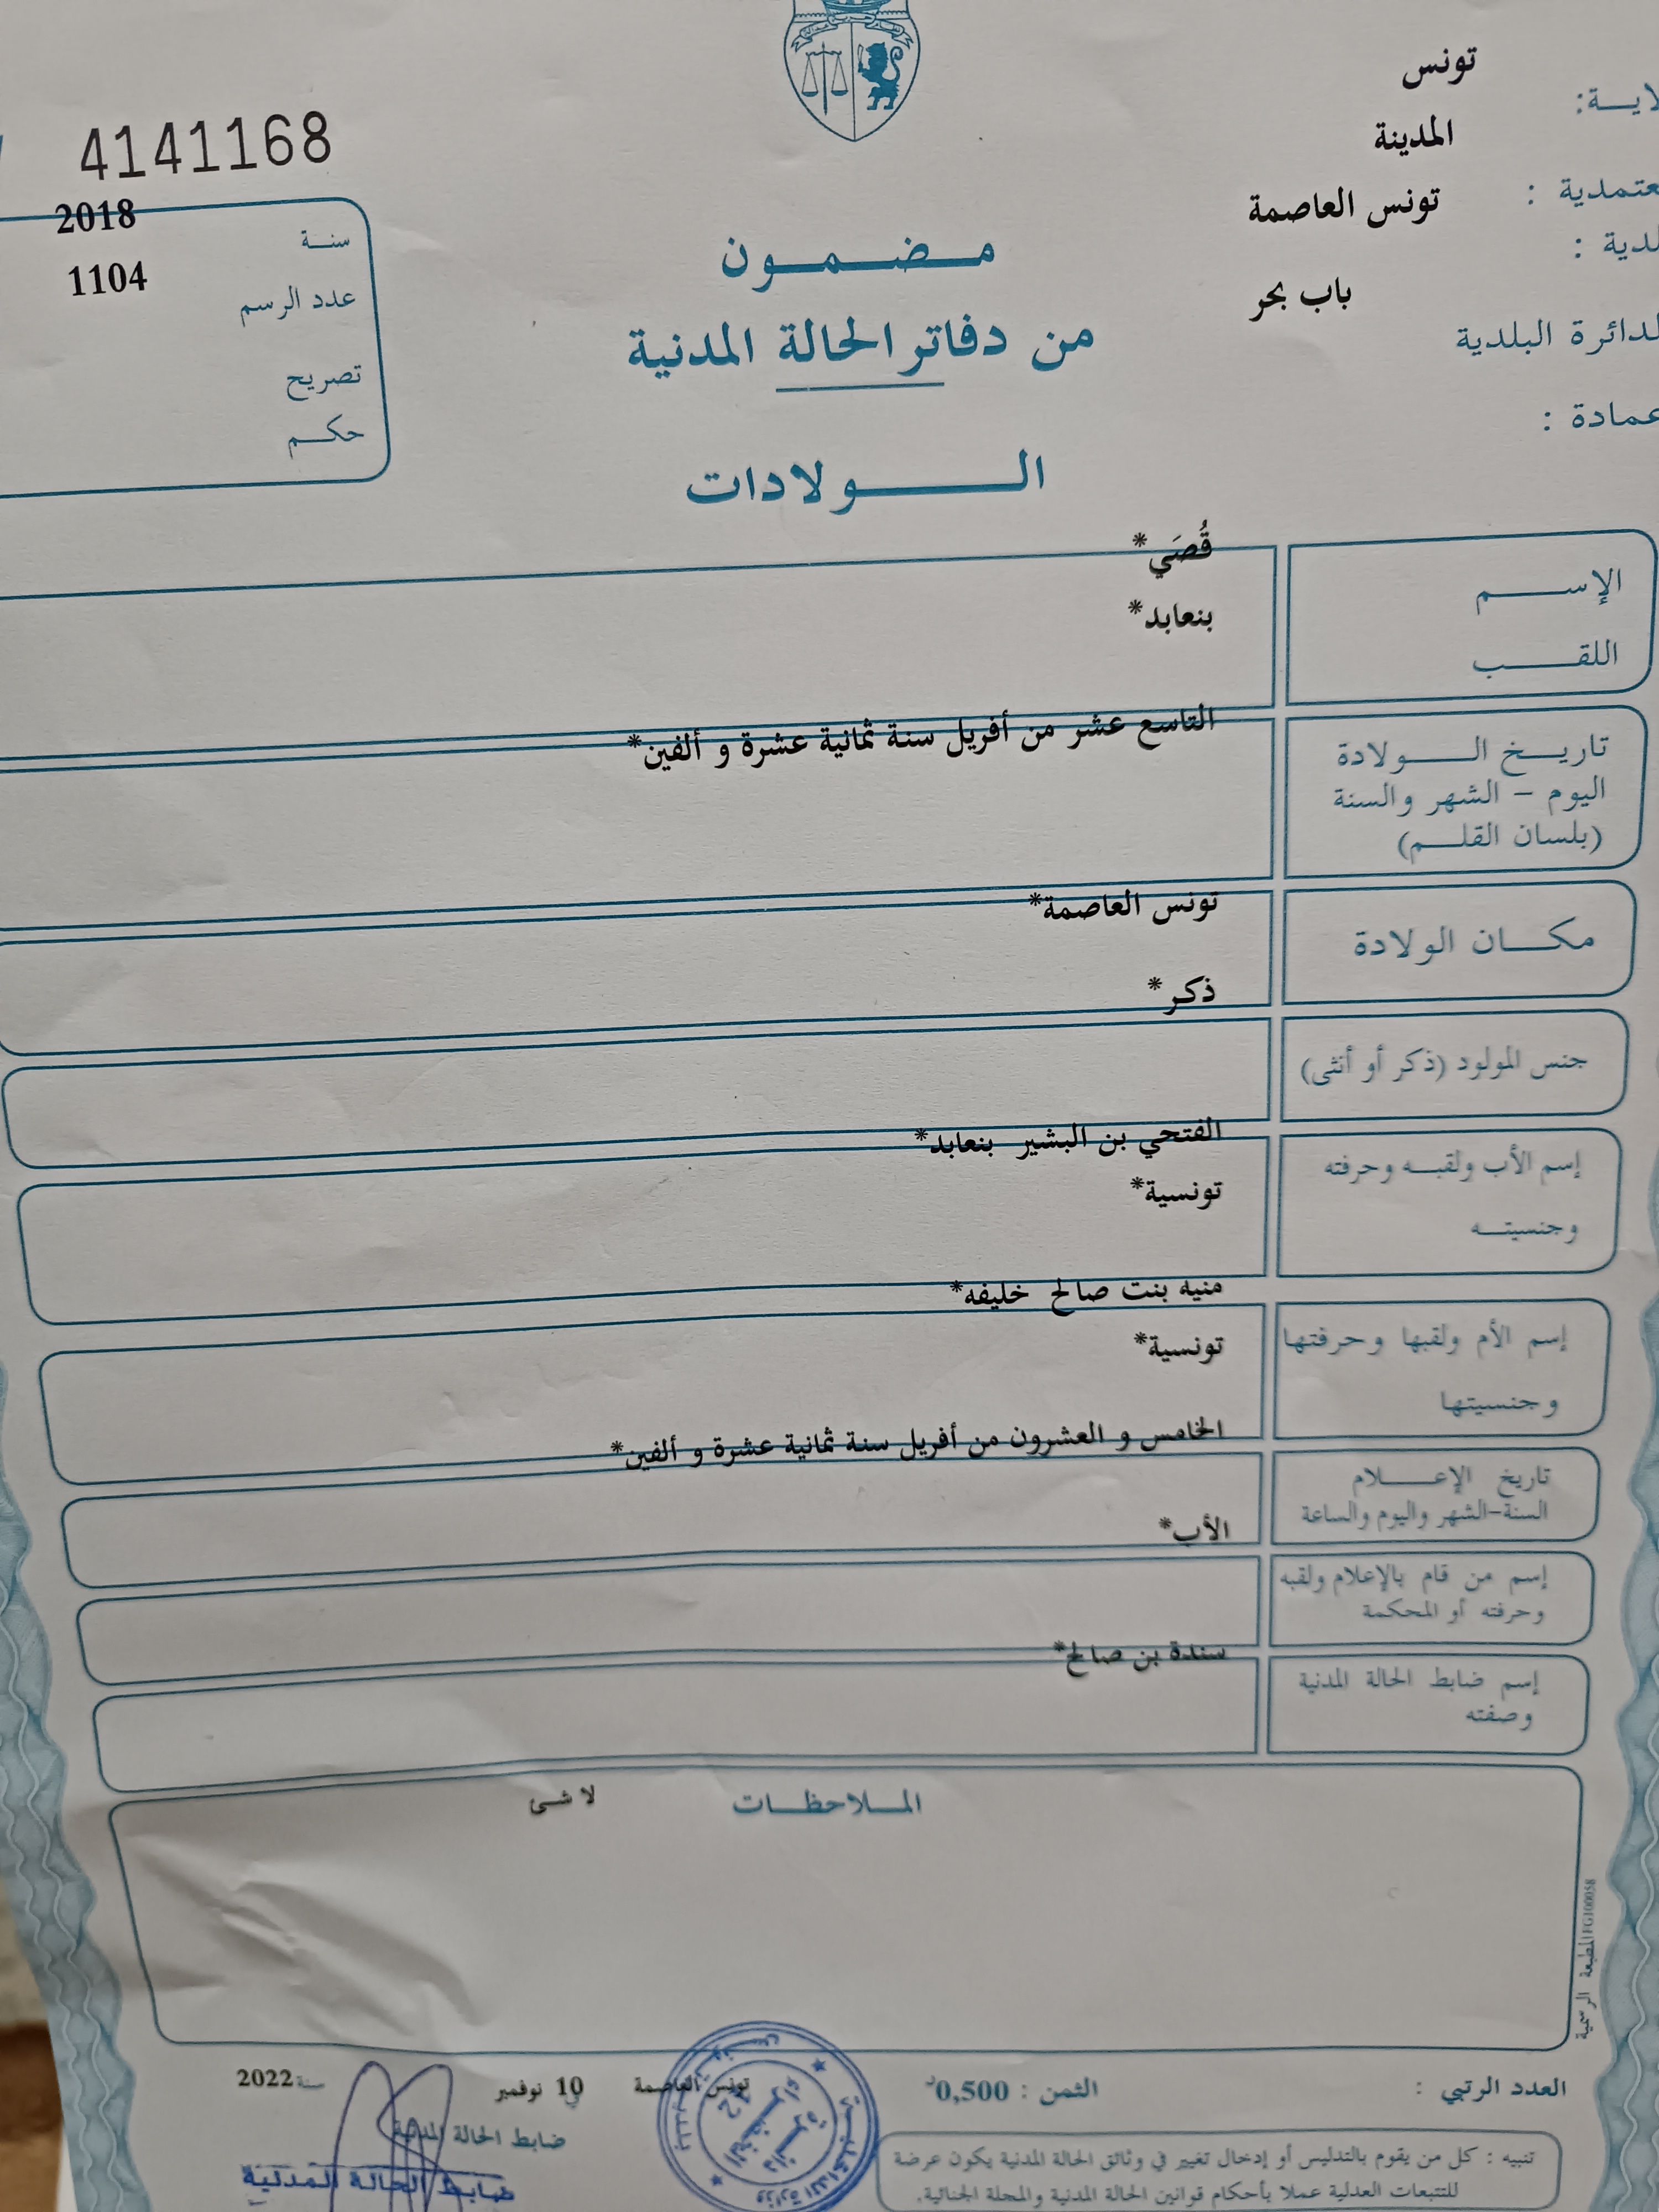 تونس
لايـــة:
المدينة
عتمدية :
تونس العاصمة
لدية :
باب بحر
لدائرة البلدية
عمادة :
4141168
سنــة 2018
عدد الرسم 1104
تصريح
حكــم
مـــضـــمـــون
من دفاتر الحالة المدنية
الـــــولادات
الإســـــم قُصَي*
اللقـــــب بنعابد*
تاريـــخ الـــــولادة
اليوم – الشهر والسنة
(بلسان القلـــم)
التاسع عشر من أفريل سنة ثمانية عشرة و ألفين*
مكـــان الولادة تونس العاصمة*
جنس المولود (ذكر أو أنثى) ذكر*
إسم الأب ولقبــه وحرفته الفتحي بن البشير بنعابد*
وجنسيتــه تونسية*
إسم الأم ولقبها وحرفتها منيه بنت صالح خليفه*
وجنسيتها تونسية*
تاريخ الإعـــــلام
السنة-الشهر واليوم والساعة
الخامس و العشرون من أفريل سنة ثمانية عشرة و ألفين*
إسم من قام بالإعلام ولقبه
وحرفته أو المحكمة
الأب*
إسم ضابط الحالة المدنية
وصفته
سندة بن صالح*
المــلاحظــات لا شئ
المطبعة الرسمية
العدد الرتبي :
الثمن : 0,500د
تونس العاصمة في 10 نوفمبر سنة 2022
ضابط الحالة المدنية
ضابط الحالة المدنية
تنبيه : كل من يقوم بالتدليس أو إدخال تغيير في وثائق الحالة المدنية يكون عرضة
للتتبعات العدلية عملا بأحكام قوانين الحالة المدنية والمجلة الجنائية.